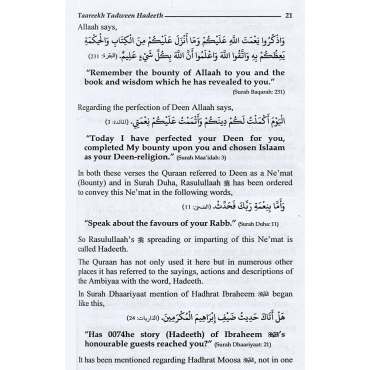 Taareekh Tadween Hadeeth 21
Allaah says,
وَاذْكُرُوا نِعْمَتَ اللَّهِ عَلَيْكُمْ وَمَا أَنْزَلَ عَلَيْكُمْ مِنَ الْكِتَابِ وَالْحِكْمَةِ
يَعِظُكُمْ بِهِ وَاتَّقُوا اللَّهَ وَاعْلَمُوا أَنَّ اللَّهَ بِكُلِّ شَيْءٍ عَلِيمٌ. (البقرة: 231)
"Remember the bounty of Allaah to you and the
book and wisdom which he has revealed to you."
(Surah Baqarah: 231)
Regarding the perfection of Deen Allaah says,
الْيَوْمَ أَكْمَلْتُ لَكُمْ دِينَكُمْ وَأَتْمَمْتُ عَلَيْكُمْ نِعْمَتِي. (المائدة: 3)
"Today I have perfected your Deen for you,
completed My bounty upon you and chosen Islaam
as your Deen-religion." (Surah Maa'idah: 3)
In both these verses the Quraan referred to Deen as a Ne'mat
(Bounty) and in Surah Duha, Rasulullaah ﷺ has been ordered
to convey this Ne'mat in the following words,
وَأَمَّا بِنِعْمَةِ رَبِّكَ فَحَدِّثْ. (الضحى: 11)
"Speak about the favours of your Rabb." (Surah Duha: 11)
So Rasulullaah's ﷺ spreading or imparting of this Ne'mat is
called Hadeeth.
The Quraan has not only used it here but in numerous other
places it has referred to the sayings, actions and descriptions of
the Ambiyaa with the word, Hadeeth.
In Surah Dhaariyaat mention of Hadhrat Ibraheem began
like this,
هَلْ أَتَاكَ حَدِيثُ ضَيْفِ إِبْرَاهِيمَ الْمُكْرَمِينَ. (الذاريات: 24)
"Has 0074he story (Hadeeth) of Ibraheem 's
honourable guests reached you?" (Surah Dhaariyaat: 21)
It has been mentioned regarding Hadhrat Moosa , not in one